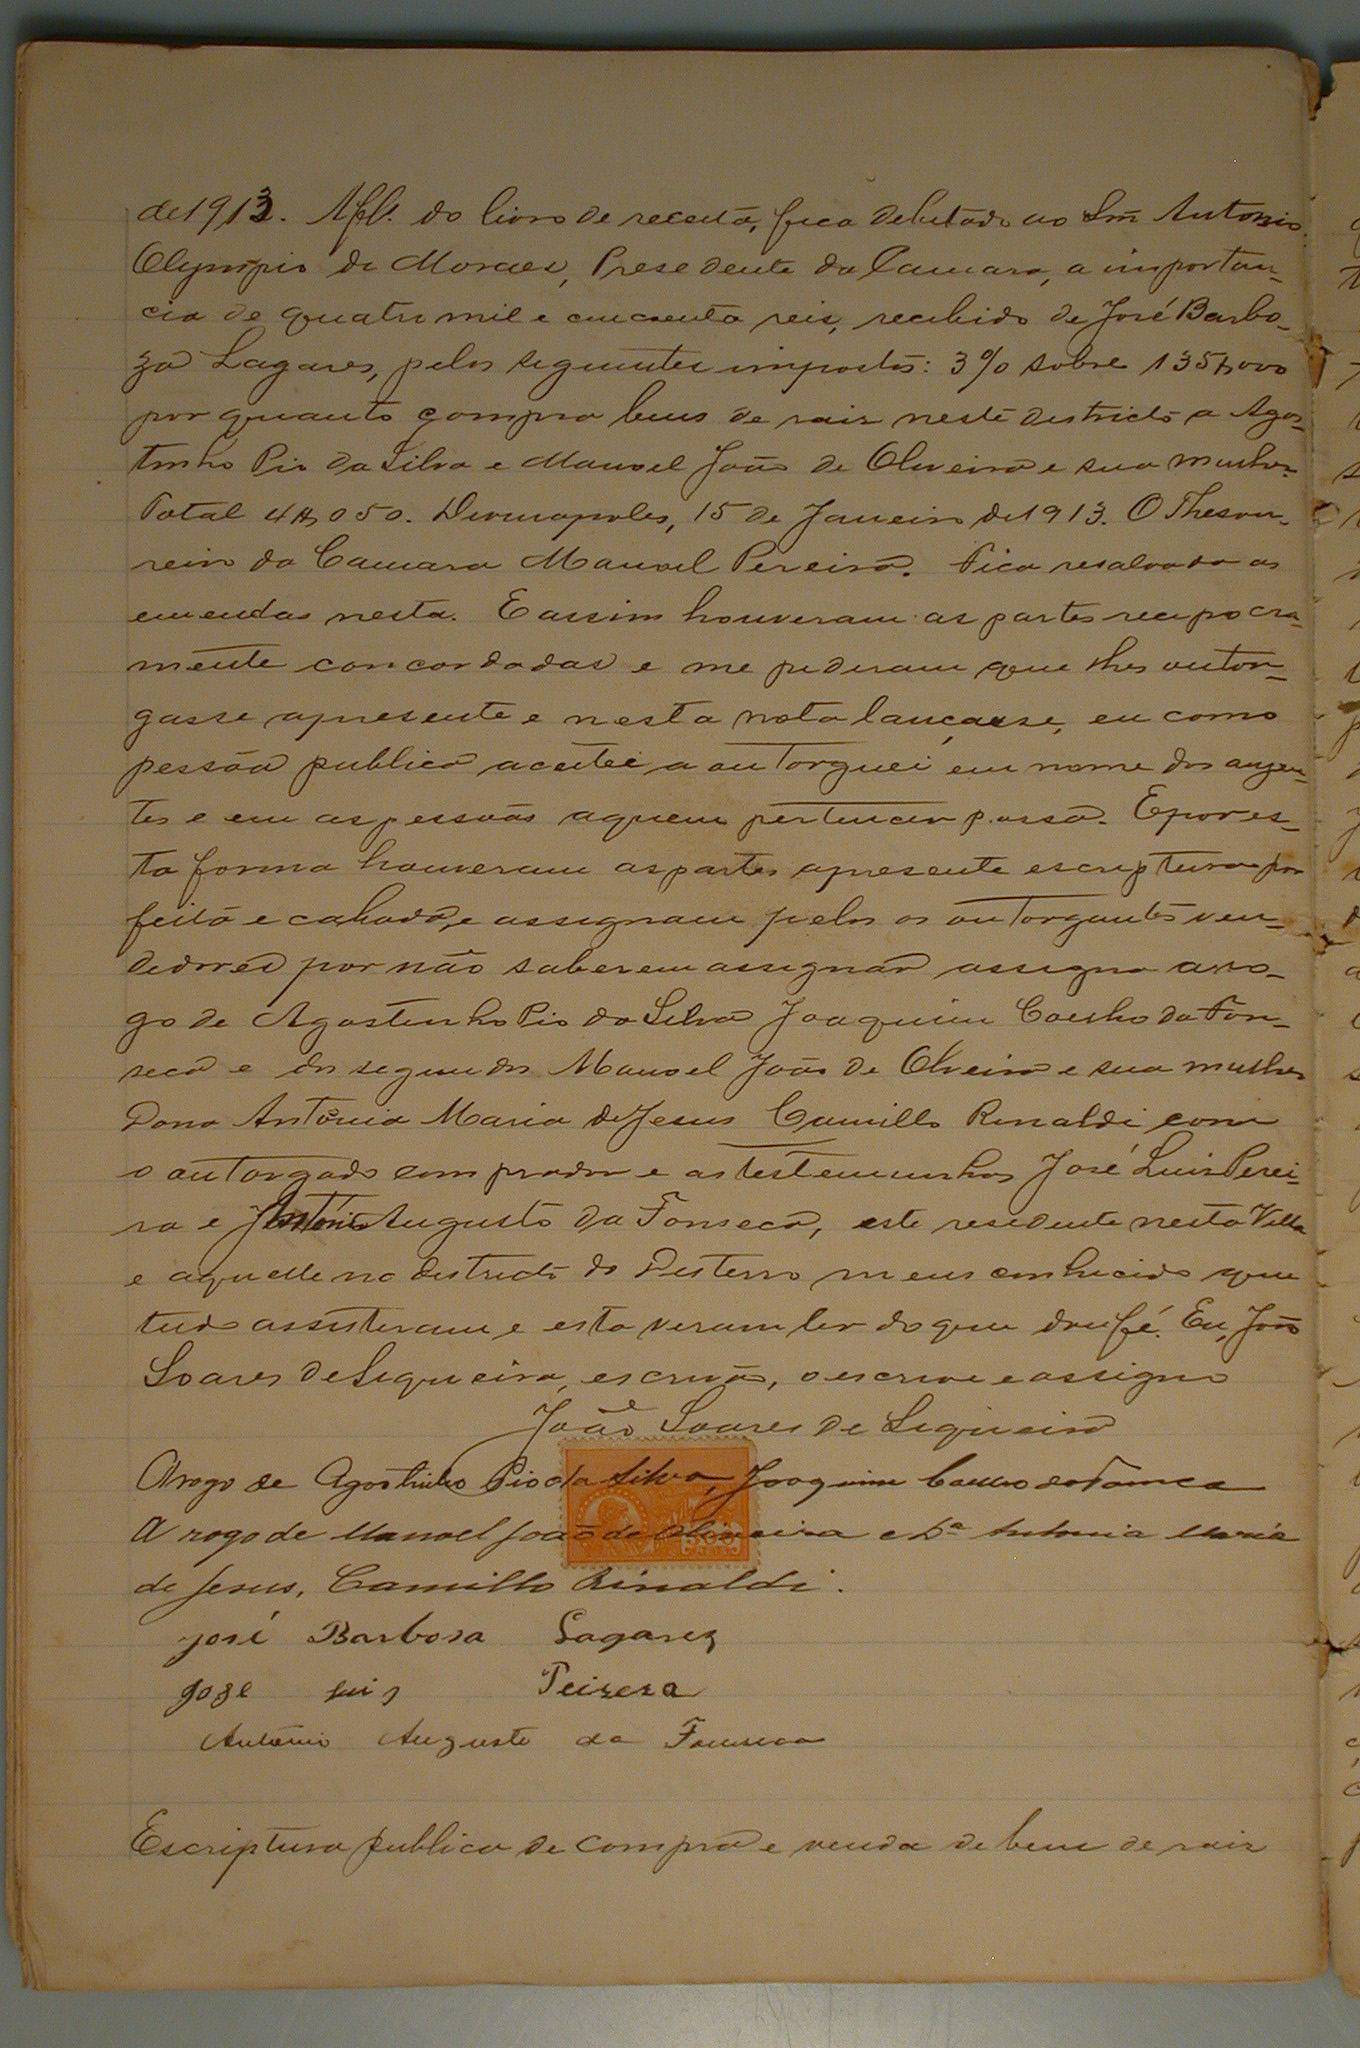 de 1913. Afls. do livro de receita, fica debitado ao Snr. Antonio
Olympio de Moraes, Presedente da Camara, a importan-
cia de quatro mil e cincoenta reis, recebido de José Barbo-
za Lagares, pelos seguintes impostos: 3% sobre 135$000
por quanto compra bens de raiz neste districto a Agos-
tinho Pio da Silva e Manoel João de Oliveira e sua mulher.
Total 4$050. Divinopoles, 15 de Janeiro de 1913. O Thesou-
reiro da Camara Manoel Pereira. Fica resalvado as
emendas nesta. E assim houveram as partes recipocra-
mente concordadas e me pederam que lhes outor-
gasse apresente e nesta nota lançasse, eu como
pessôa publica aceitei a outorguei em nome dos auzen-
tes e em as pessoas aquem pertencer possa. E por es-
ta forma houveram as partes apresente escriptura por
feita e cabada, e assignam pelos os outorgantes ven-
dedores por não saberem assignar assigna a ro-
go de Agostinho Pio da Silva Joaquim Coelho da Fon-
seca e dos segundos Manoel João de Olveira e sua mulher
Dona Antônia Maria de Jesus Camillo Rinaldi com
o outorgado comprador e as testemunhas José Luis Perei-
ra e Antônio Augusto da Fonseca, este residente nesta Villa
e aquelle no districto do Desterro meus conhecido que
tudo assisteram e esta veram ler do que dou fé. Eu, João
Soares de Siqueira, escrivão, o escrevi e assigno
João Soares de Siqueira
Arogo de Agostinho Pio da Silva, Joaquim Coelho da Fonseca
A rogo de Manoel João de Oliveira e Dª Antonia Maria
de Jesus, Camillo Rinaldi.
José Barbosa Lagares
Joze Luis Peirera
Antonio Augusto da Fonseca
Escriptura publica de compra e venda de bens de raiz